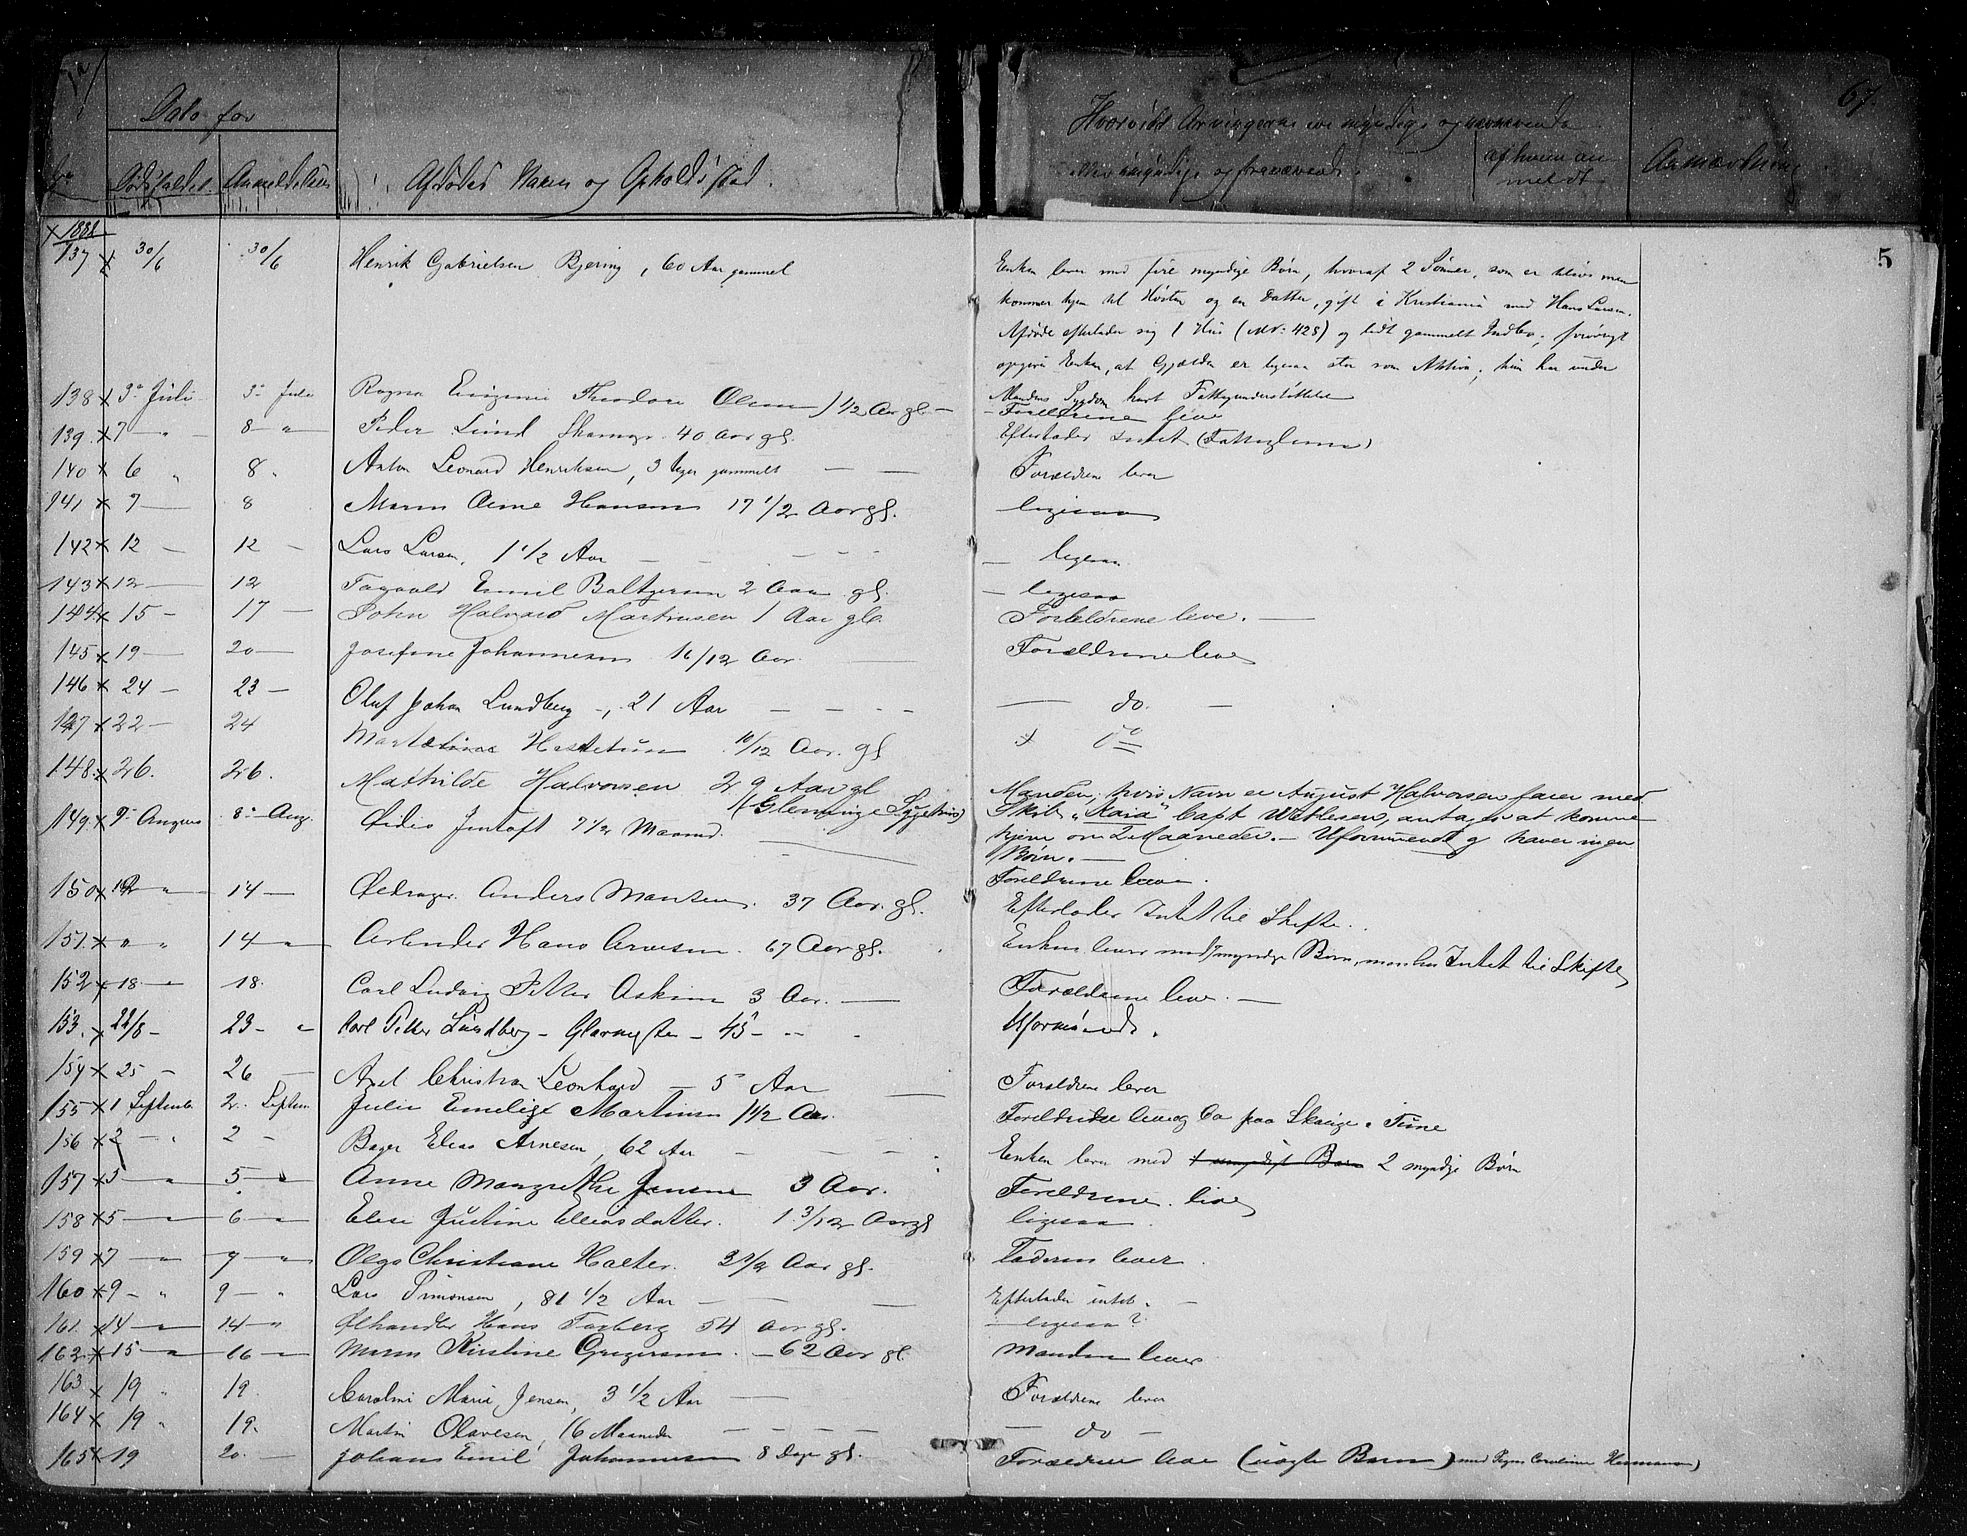 Dato for
Dødsfaldet. Anmeldelsen
Afdødes Navn og Opholdssted.
Hvorvidt Arvingerne ere myndige og nærværende
eller umyndige og fraværende.
af hvem an
meldt
Anmærkning
67.
5
1882
137 30/6 30/6 Henrik Gabrielsen Bjering, 60 Aar gammel
Enken lever med fire myndige Børn, hvoraf 2 Sønner, som er tilsøs men
kommer hjem til Høsten og en Datter, gift i Kristiania med Hans Larsen.
Afdøde efterlader sig 1 Hus (MN: 428) og lidt gammelt Indbo; forøvrigt
opgiver Enken, at Gjælden er ligesaa stor som Aktiva; hun har under
Mandens Sygdom havt Fattigunderstøttelse
138 3 Juli 3 Juli Ragna Eugenie Theodora Olsen 1 1/2 Aar gl. Forældrene leve
139 7 8 Peder Lund 40 Aar gl. Efterlader Intet (Fattiglem)
140 6 8 Anton Leonard Henriksen, 3 Uger gammelt Forældrene lever
141 7 8 Maren Hansen 17 1/2 Aar gl. ligesaa
142 12 12 Lars Larsen, 1 1/2 Aar ligesaa
143 12 12 Emil Baltzersen 2 Aar gl. ligesaa
144 15 17 John Halvard Martinsen 1 Aar gl. Forældrene leve.
145 19 20 Josefine Johannesen 10/12 Aar. Forældrene leve
146 24 23 Oluf Johan Lundberg, 21 Aar do.
147 22 24 10/12 Aar. gl do
148 26. 26. Mathilde Halvorsen 29 Aar gl
(Glemminge Sygehus)
Manden, hvis Navn er August Halvorsen farer med
Skib, "Kaia" Capt Wathesen, antages at komme
hjem om 2 Maaneder. - Uformuende og haver ingen
Børn.
149 9 August 8 Aug. Jentoft 7 1/2 Maaned. Forældrene leve.
150 12 14 Anders Monsen. 37 Aar. gl. Efterlader Intet til Skifte.
151. 14 Arbeider Hans Arvesen. 67 Aar gl. Enken lever med myndige Børn, men har Intet til Skifte
152 18. 18. Carl Ludvig Petter Askim 3 Aar. Forældrene leve.
153. 22/8 23 Carl Petter Lundberg - Glarmester - 45 Uformuende.
154 25 26 Axel Christian Leonhard - 5 Aar Forældrene lever
155 1 Septemb. 2. Septem. Julie Emelije Martinsen 1 1/2 Aar. Forældrene leve og bo paa i Tune
156 2 2 Bager Elias Arnesen, 62 Aar Enken lever med 2 myndige Børn
157 5 5 Anne Margrethe Jensen 3 Aar. Forældrene leve
158 5 6 Elise Justine Eliasdatter. 1 3/12 Aar gl ligesaa
159 7 7 Olga Christiane Holter. 3 1/2 Aar gl. Faderen lever
160 9 9 Lars Simonsen, 81 1/2 Aar Efterlader intet.
161. 14 14 Ølhandler Hans Torberg 54 Aar gl. ligesaa?
162. 15 16 Maren Kirstine Gregersen. 62 Aar gl. Manden lever
163 19 19. Caroline Marie Jensen, 3 1/2 Aar Forældrene lever
164 19 19. Martin Olavesen, 16 Maaneder do
165 19 20. Johans Emil Johannesen 8 Dage gl. Forældrene leve (uægte Barn) med Caroline Hermansen)